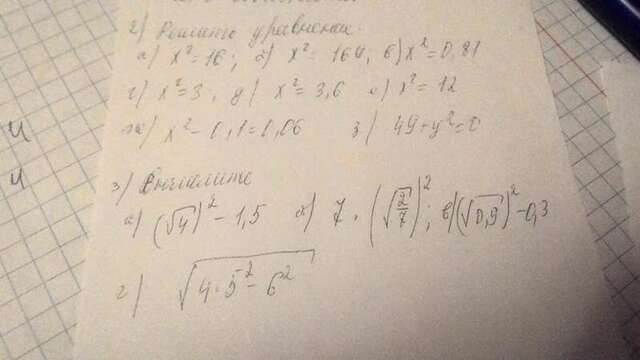 2) Решить уравнения.
а) x²=16; б) x²=164; в) x²=0,81
г) x²=3; д) x²=3,6 е) x²=12
ж) x²-0,1=0,06 з) 49+y²=0
3) Вычислите
а) (√4)²-1,5 б) 7·(√2/7)²; в) (√0,9)²-0,3
г) √4·5²-6²